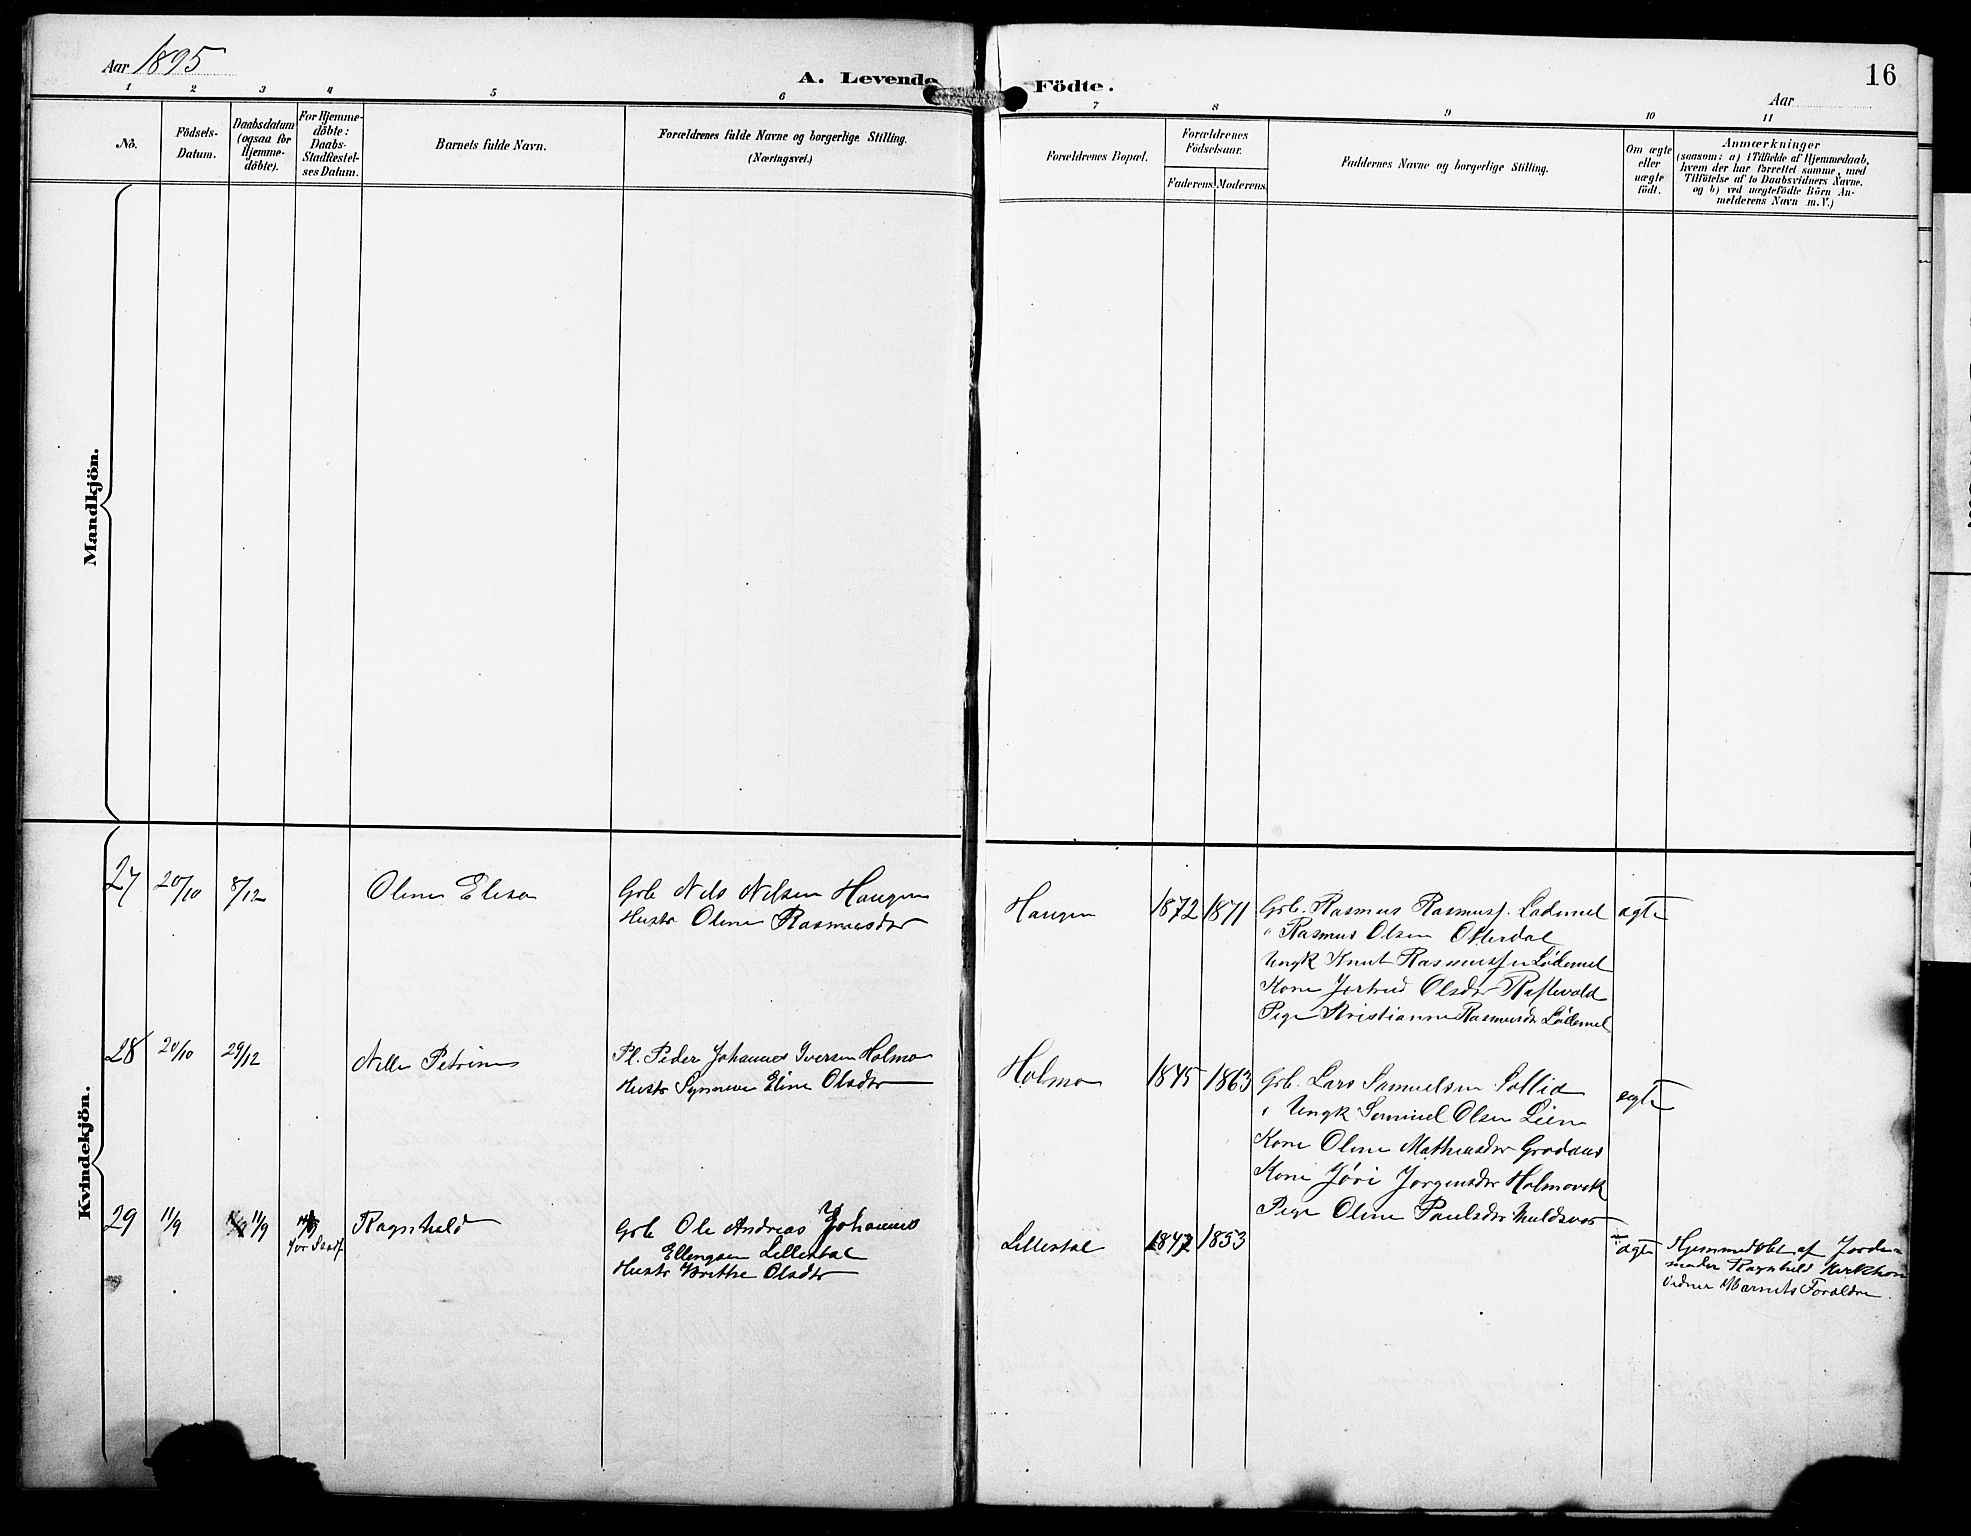 Aar 1895
A. Levende Födte.
16
Aar
1 2 3 4 5 6 7 8 9 10 11
No.
Födsels-
Datum.
Daabsdatum
(ogsaa for
Hjemme-
döbte).
For Hjemme-
döbte:
Daabs-
Stadfæstel-
ses Datum.
Barnets fulde Navn.
Forældrenes fulde Navne og borgerlige Stilling.
(Næringsvei.)
Forældrenes Bopæl.
Forældrenes
Födselsaar.
Faderens. Moderens.
Faddernes Navne og borgerlige Stilling.
Om ægte
eller
uægte
födt.
Anmærkninger
(saasom: a) i Tilfælde af Hjemmedaab,
hvem der har forrettet samme, med
Tilföielse af to Daabsvidners Navne,
og b) ved uægtefödte Börn An-
melderens Navn m. V.)
Mandkjön.
Kvindekjön.
27 20/10 8/12 Oline Elisa
Grb Nils Nilsen Haugen
Hustr Oline Rasmusdtr
Haugen 1872 1871
Grb. Rasmus Rasmuss. Lødemel
" Rasmus Olsen Otterdal
Ungk Knut Rasmussen Lødemel
Kone Jertrud Olsdtr Raftevold
Pige Kristianne Rasmusdtr Lødemel
ægte
28 20/10 29/12 Nille Petrine
Pl. Peder Johannes Iversen Holmø
Hustr Synneve Eline Olsdtr
Holmø 1845 1863
Grb. Lars Samuelsen Sollid
" Ungk Samuel Olsen Lien
Kone Oline Mathiasdtr Grodaas
Kone Jøri Jørgensdtr Holmøvik
Pige Oline Paulsdtr Muldsvor
ægte
29 11/9 11/9 Ragnhild
Grb Ole Andreas Johannes
Ellingsen Lillestøl
Hustr Brithe Olsdtr
Lillestøl 1847 1853
ægte
Hjemmedøbt af Jorde-
moder Ragnhild Kirkhorn
Vidner Barnets Forældre.